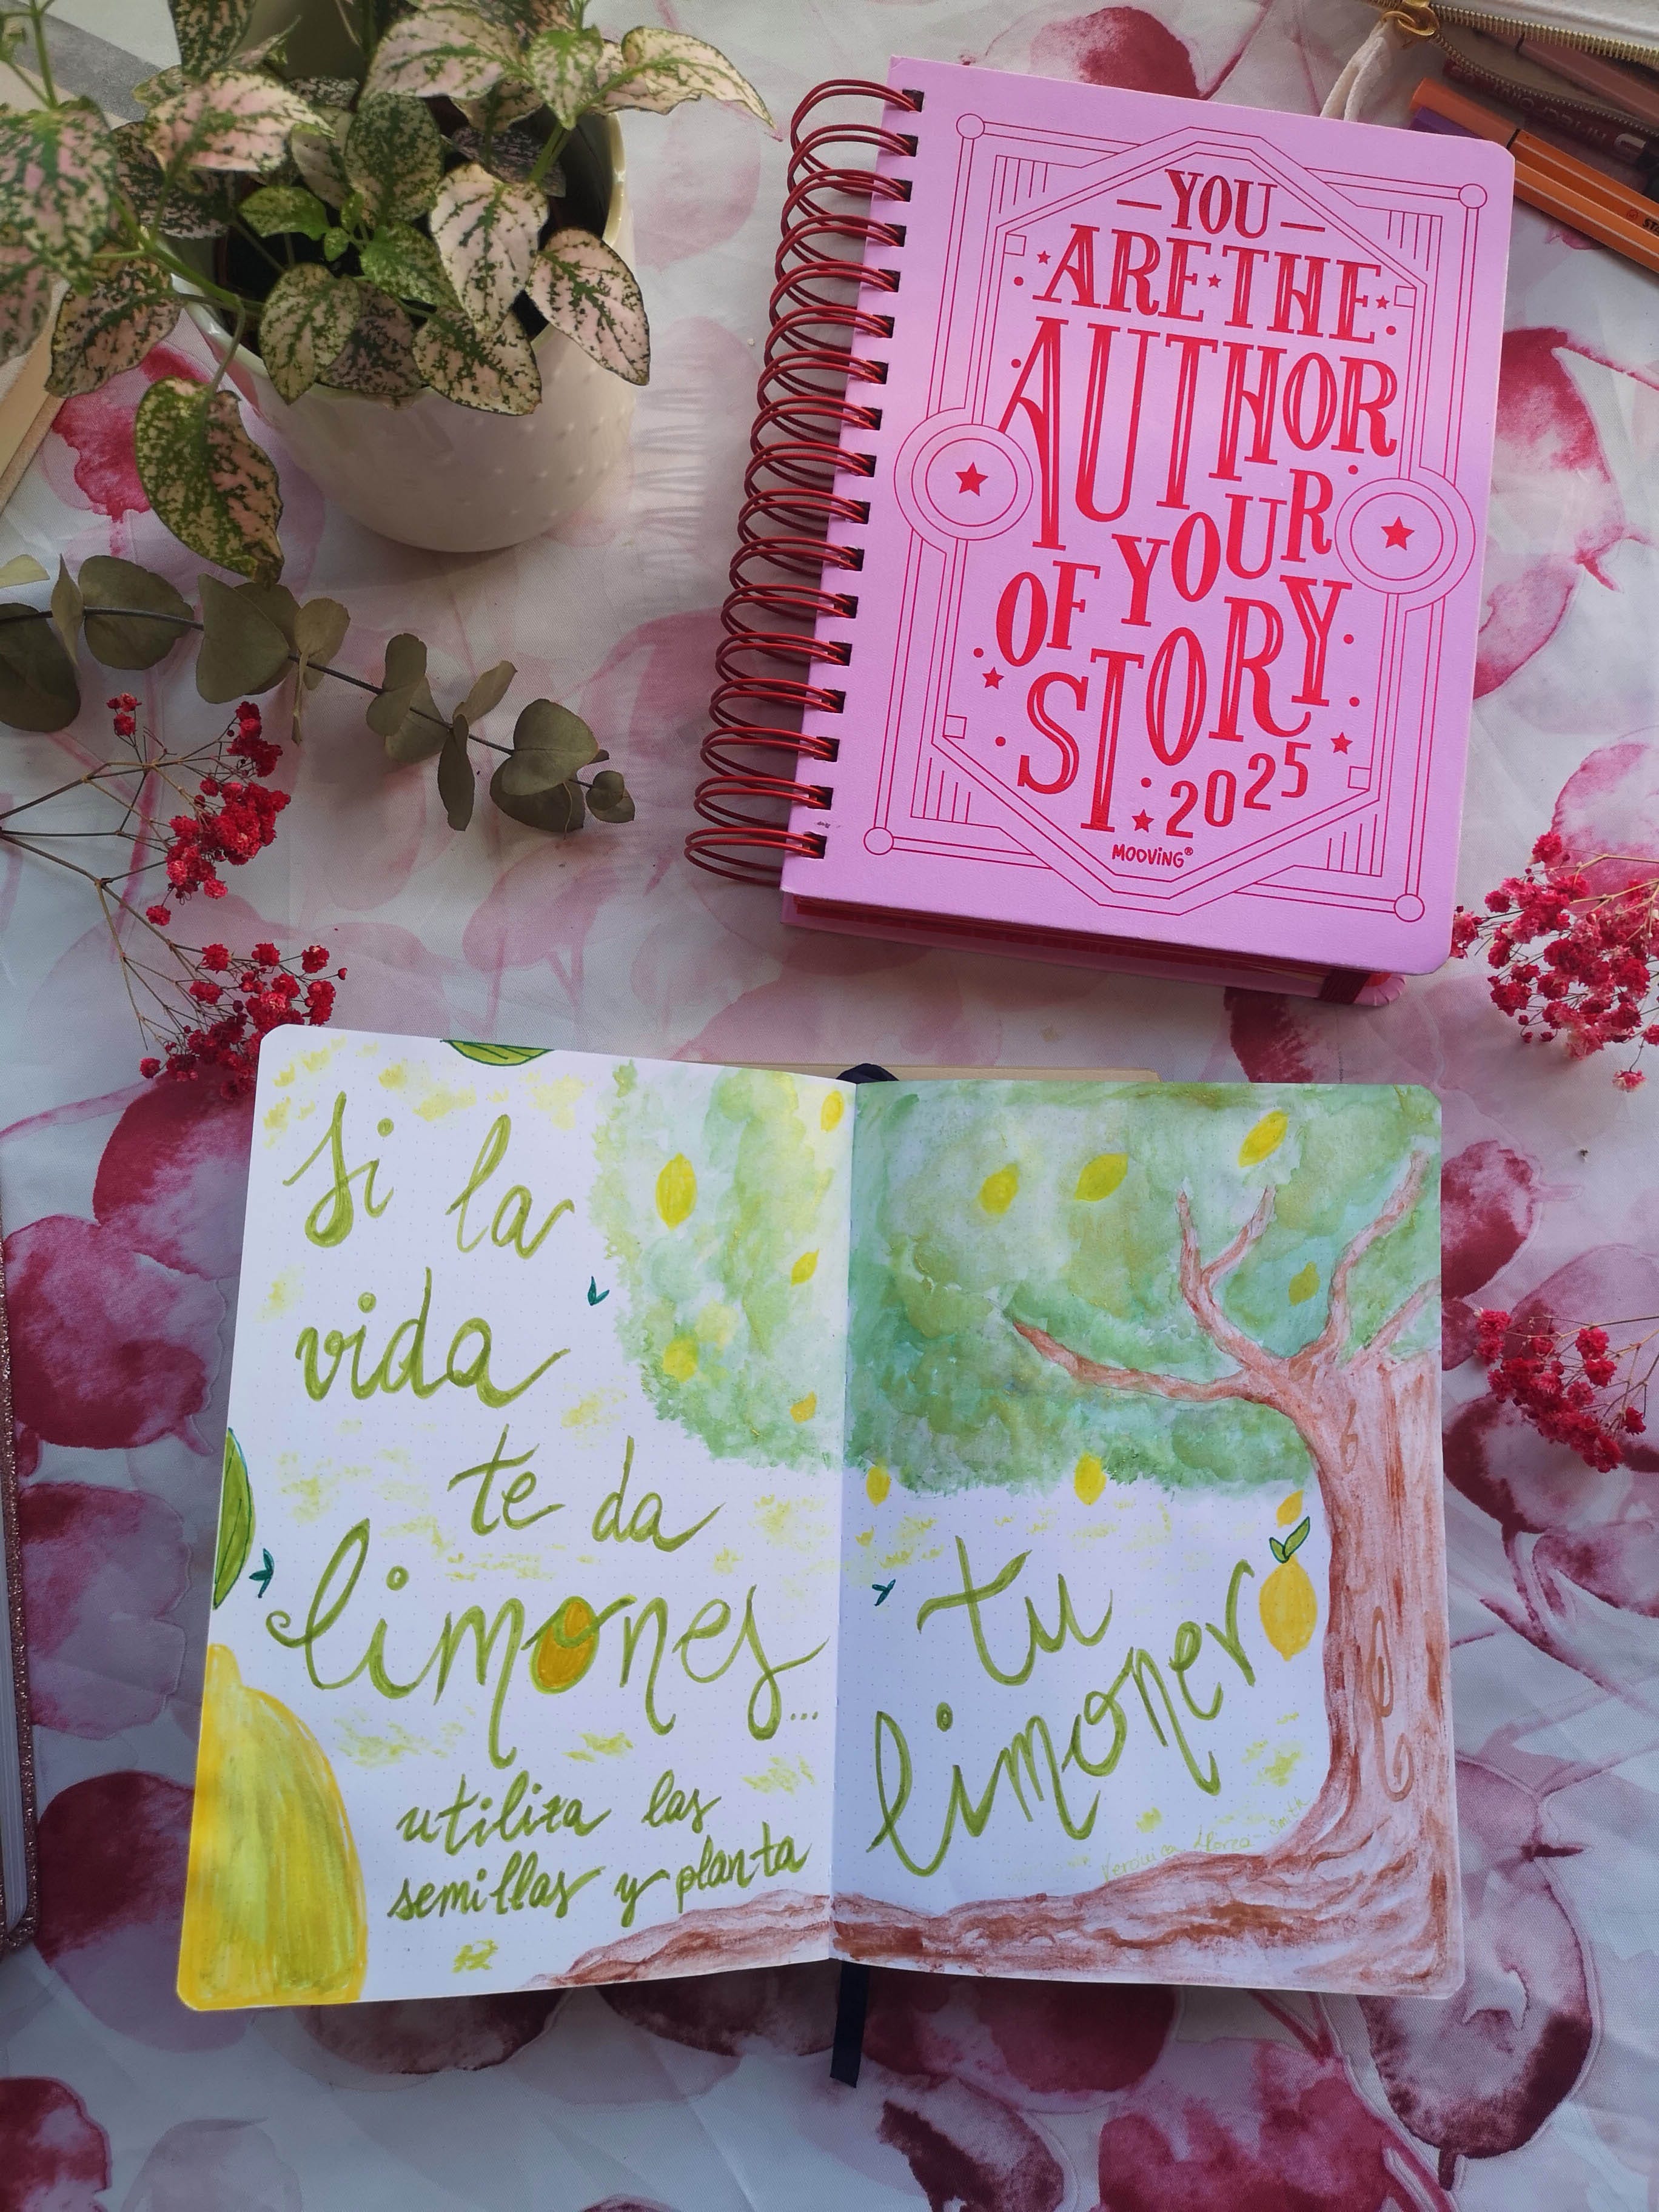 —YOU—
ARE THE
AUTHOR
OF YOUR
STORY
2025
MOOVING®
Si la
vida
te da
limones...
utiliza las
semillas y planta
tu
limoner